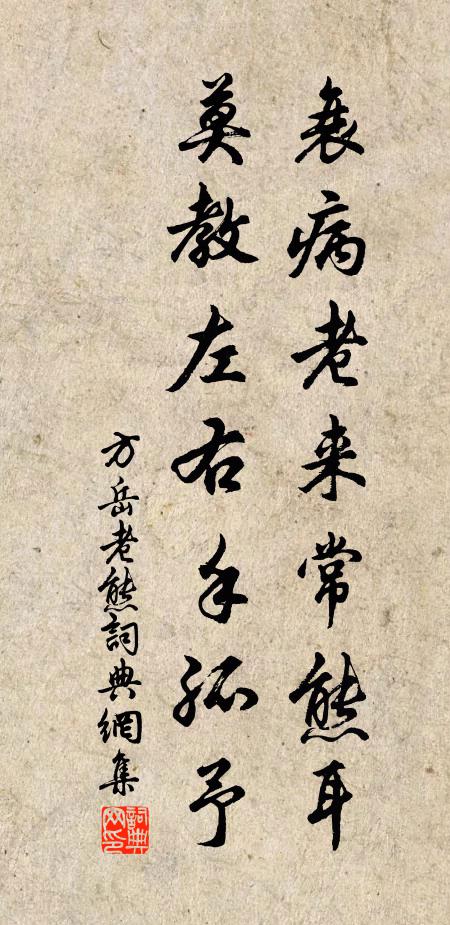 衰病老来常态耳
莫教左右手孤予
方岳老态詞典網集
詞典網印